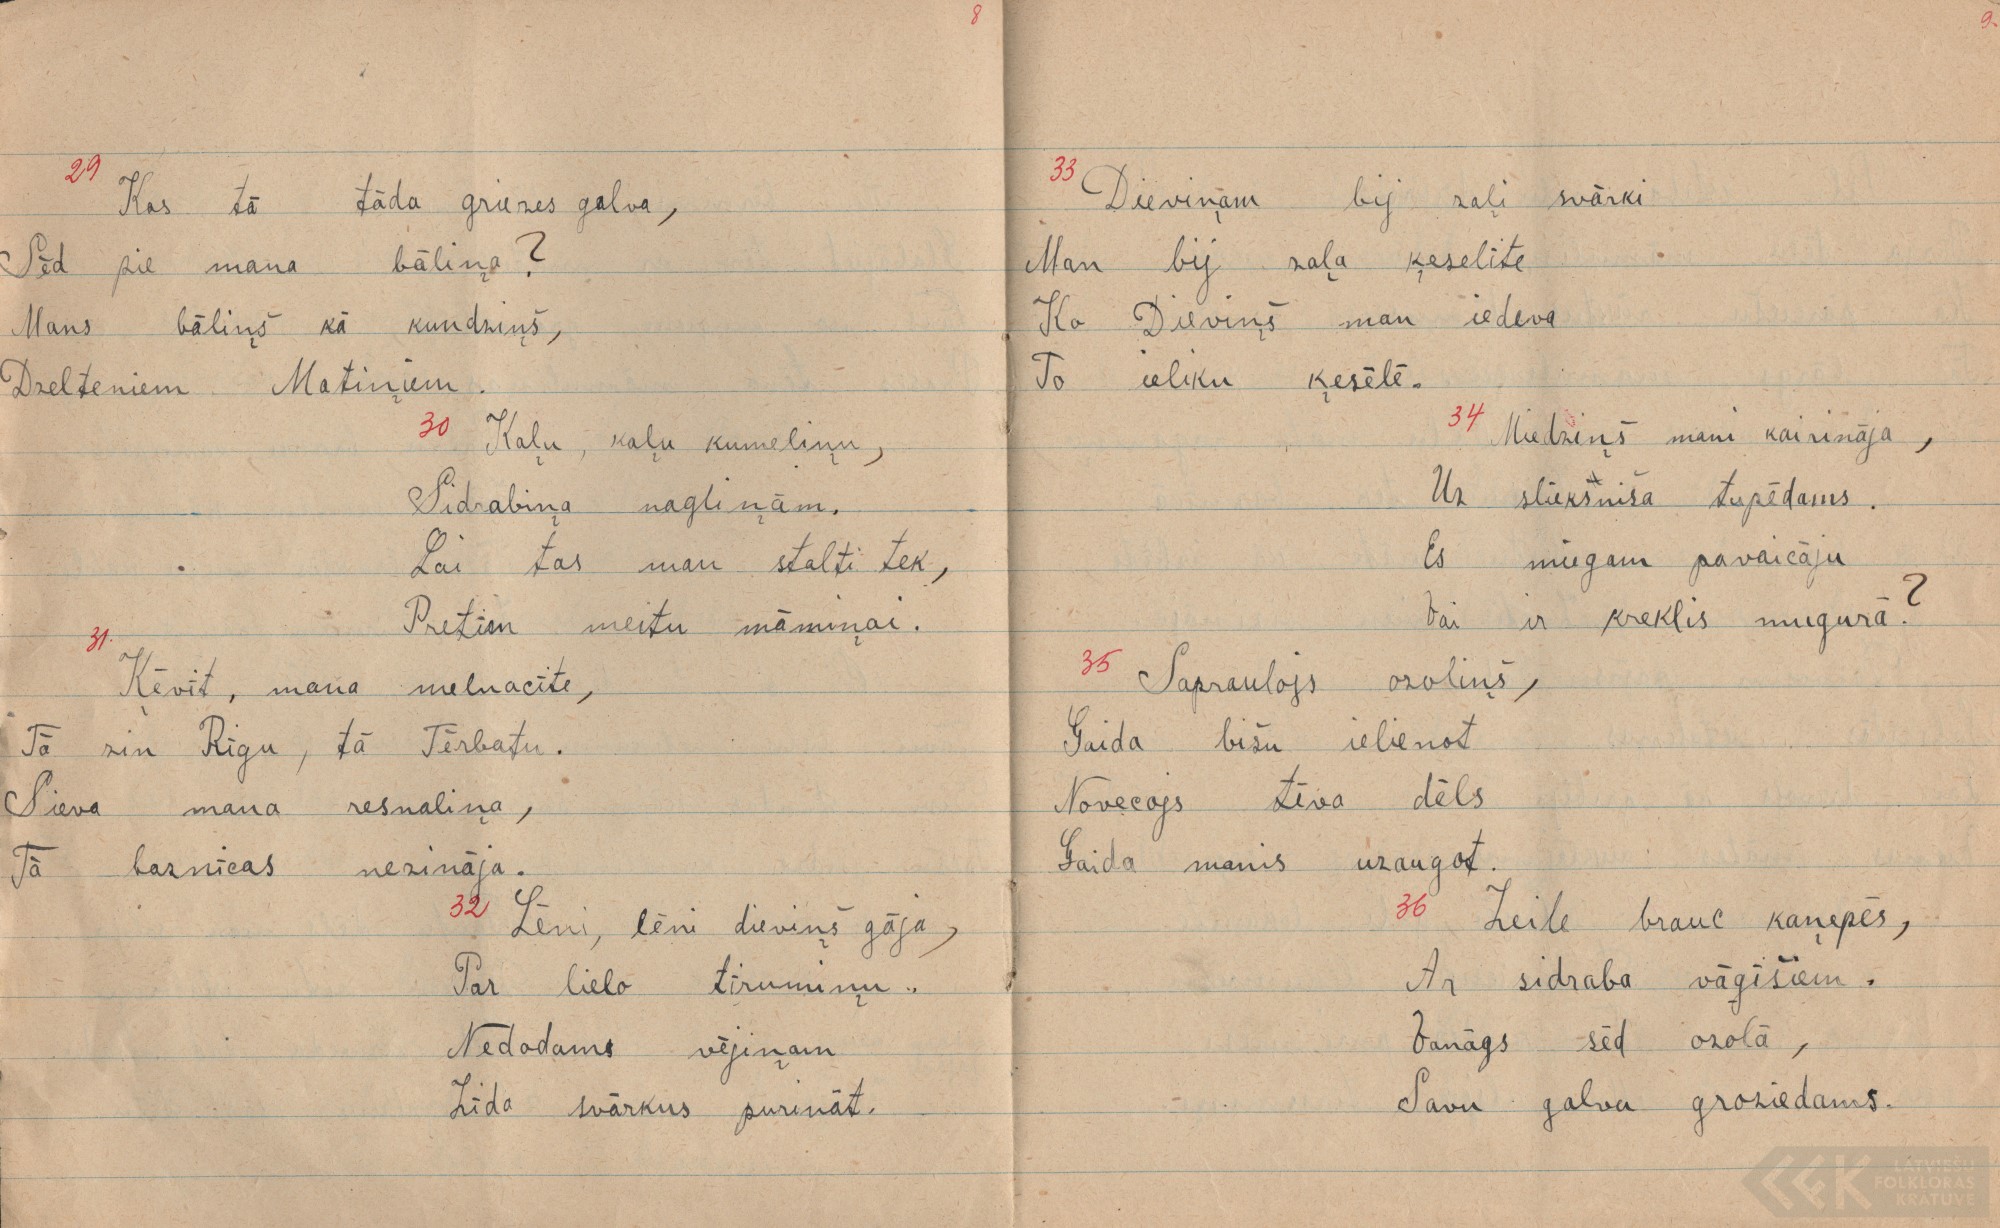 8
29
Kas tā tāda griezes galva,
Sēd pie mana bāliņa?
Mans bāliņš kā kundziņš,
Dzelteniem Matiņiem.
30
Kaļu, kaļu kumeliņu,
Sidrabiņa nagliņām.
Lai tas man stalti tek,
Pretim meitu māmiņai.
31.
Ķēvīt, mana melnacīte,
Tā zin Rīgu, tā Tērbatu.
Sieva mana resnaliņa,
Tā baznīcas nezināja.
32
Lēni, lēni dieviņš gāja,
Par lielo tīrumiņu.
Nedodams vējiņam
Zīda svārkus purināt.
9.
33
Dieviņam bij zaļi svārki
Man bij zaļa ķeselīte
Ko Dieviņš man iedeva
To ieliku ķesēlē.
34
Miedziņš mani kairināja,
Uz sliekšniša tupēdams.
Es miegam pavaicāju
Vai ir kreklis mugurā?
35
Sapraulojs ozoliņš,
Gaida bišu ielienot
Novecojs tēva dēls
Gaida manis uzaugot.
36
Zeile brauc kaņepēs,
Ar sidraba vāģīšiem.
Vanāgs sēd ozolā,
Savu galvu groziedams.
LATVIEŠU
FOLKLORAS
KRĀTUVE